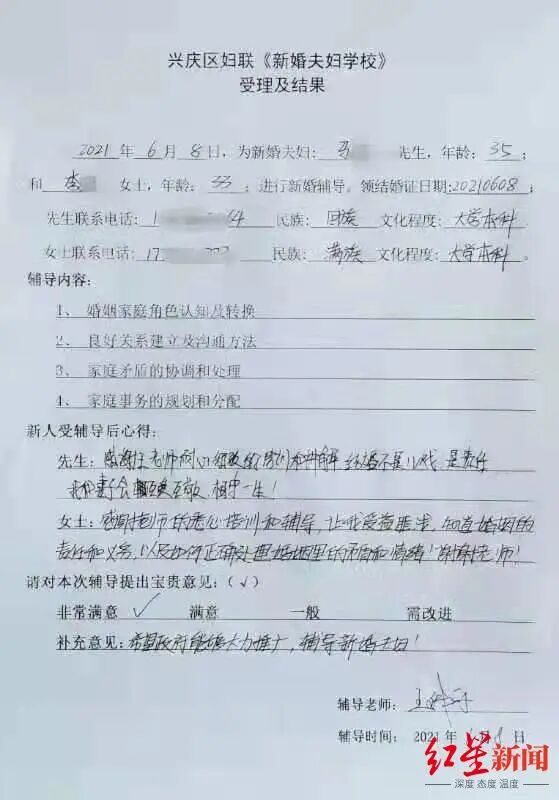 兴庆区妇联《新婚夫妇学校》
受理及结果
2021 年 6 月 8 日，为新婚夫妇：马 先生，年龄：35；
和 李 女士，年龄：33；进行新婚辅导。领结婚证日期：20210608；
先生联系电话：1 4 民族：回族 文化程度：大学本科
女士联系电话：17 777 民族：满族 文化程度：大学本科。
辅导内容：
1、婚姻家庭角色认知及转换
2、良好关系建立及沟通方法
3、家庭矛盾的协调和处理
4、家庭事务的规划和分配
新人受辅导后心得：
先生：感谢王老师 培训和讲解 结婚不是儿戏，是责任
我和妻子会 互敬，相守一生！
女士：感谢老师的悉心培训和辅导，让我受益匪浅，知道婚姻的
责任和义务，以及如何正确处理婚姻里的矛盾和情绪！谢谢老师！
请对本次辅导提出宝贵意见：（√）
非常满意 √ 满意 一般 需改进
补充意见：希望政府能够大力推广，辅导新婚夫妇！
辅导老师：王
辅导时间：2021 年 6 月 8 日
红星新闻
深度 态度 温度